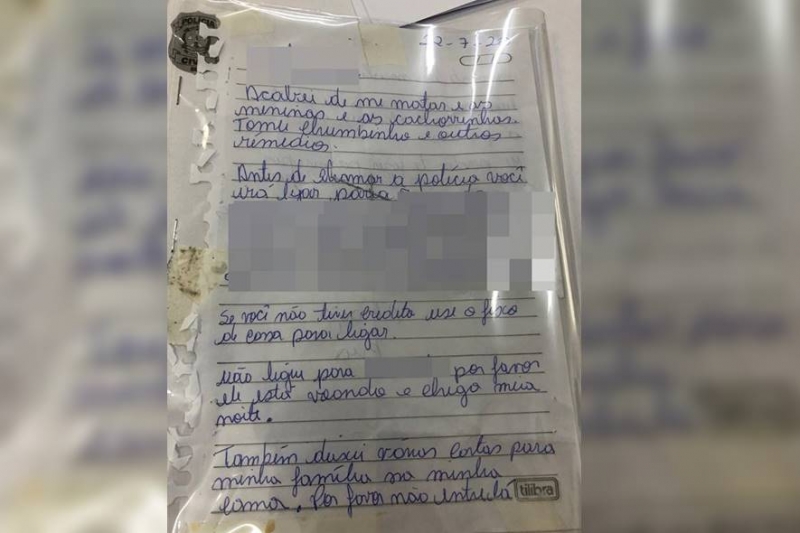 POLÍCIA
22-7-2
Acabei de me matar e as
meninas e as cachorrinhas.
Tomei chumbinho e outros
remédios.
Antes de chamar a polícia você
irá ligar para
Se você não tiver crédito use o fixo
de casa para ligar.
Não ligue para por favor
ele está voando e chega meia
noite.
Também deixei várias cartas para
minha família na minha
cama. Por favor não entre lá
tilibra